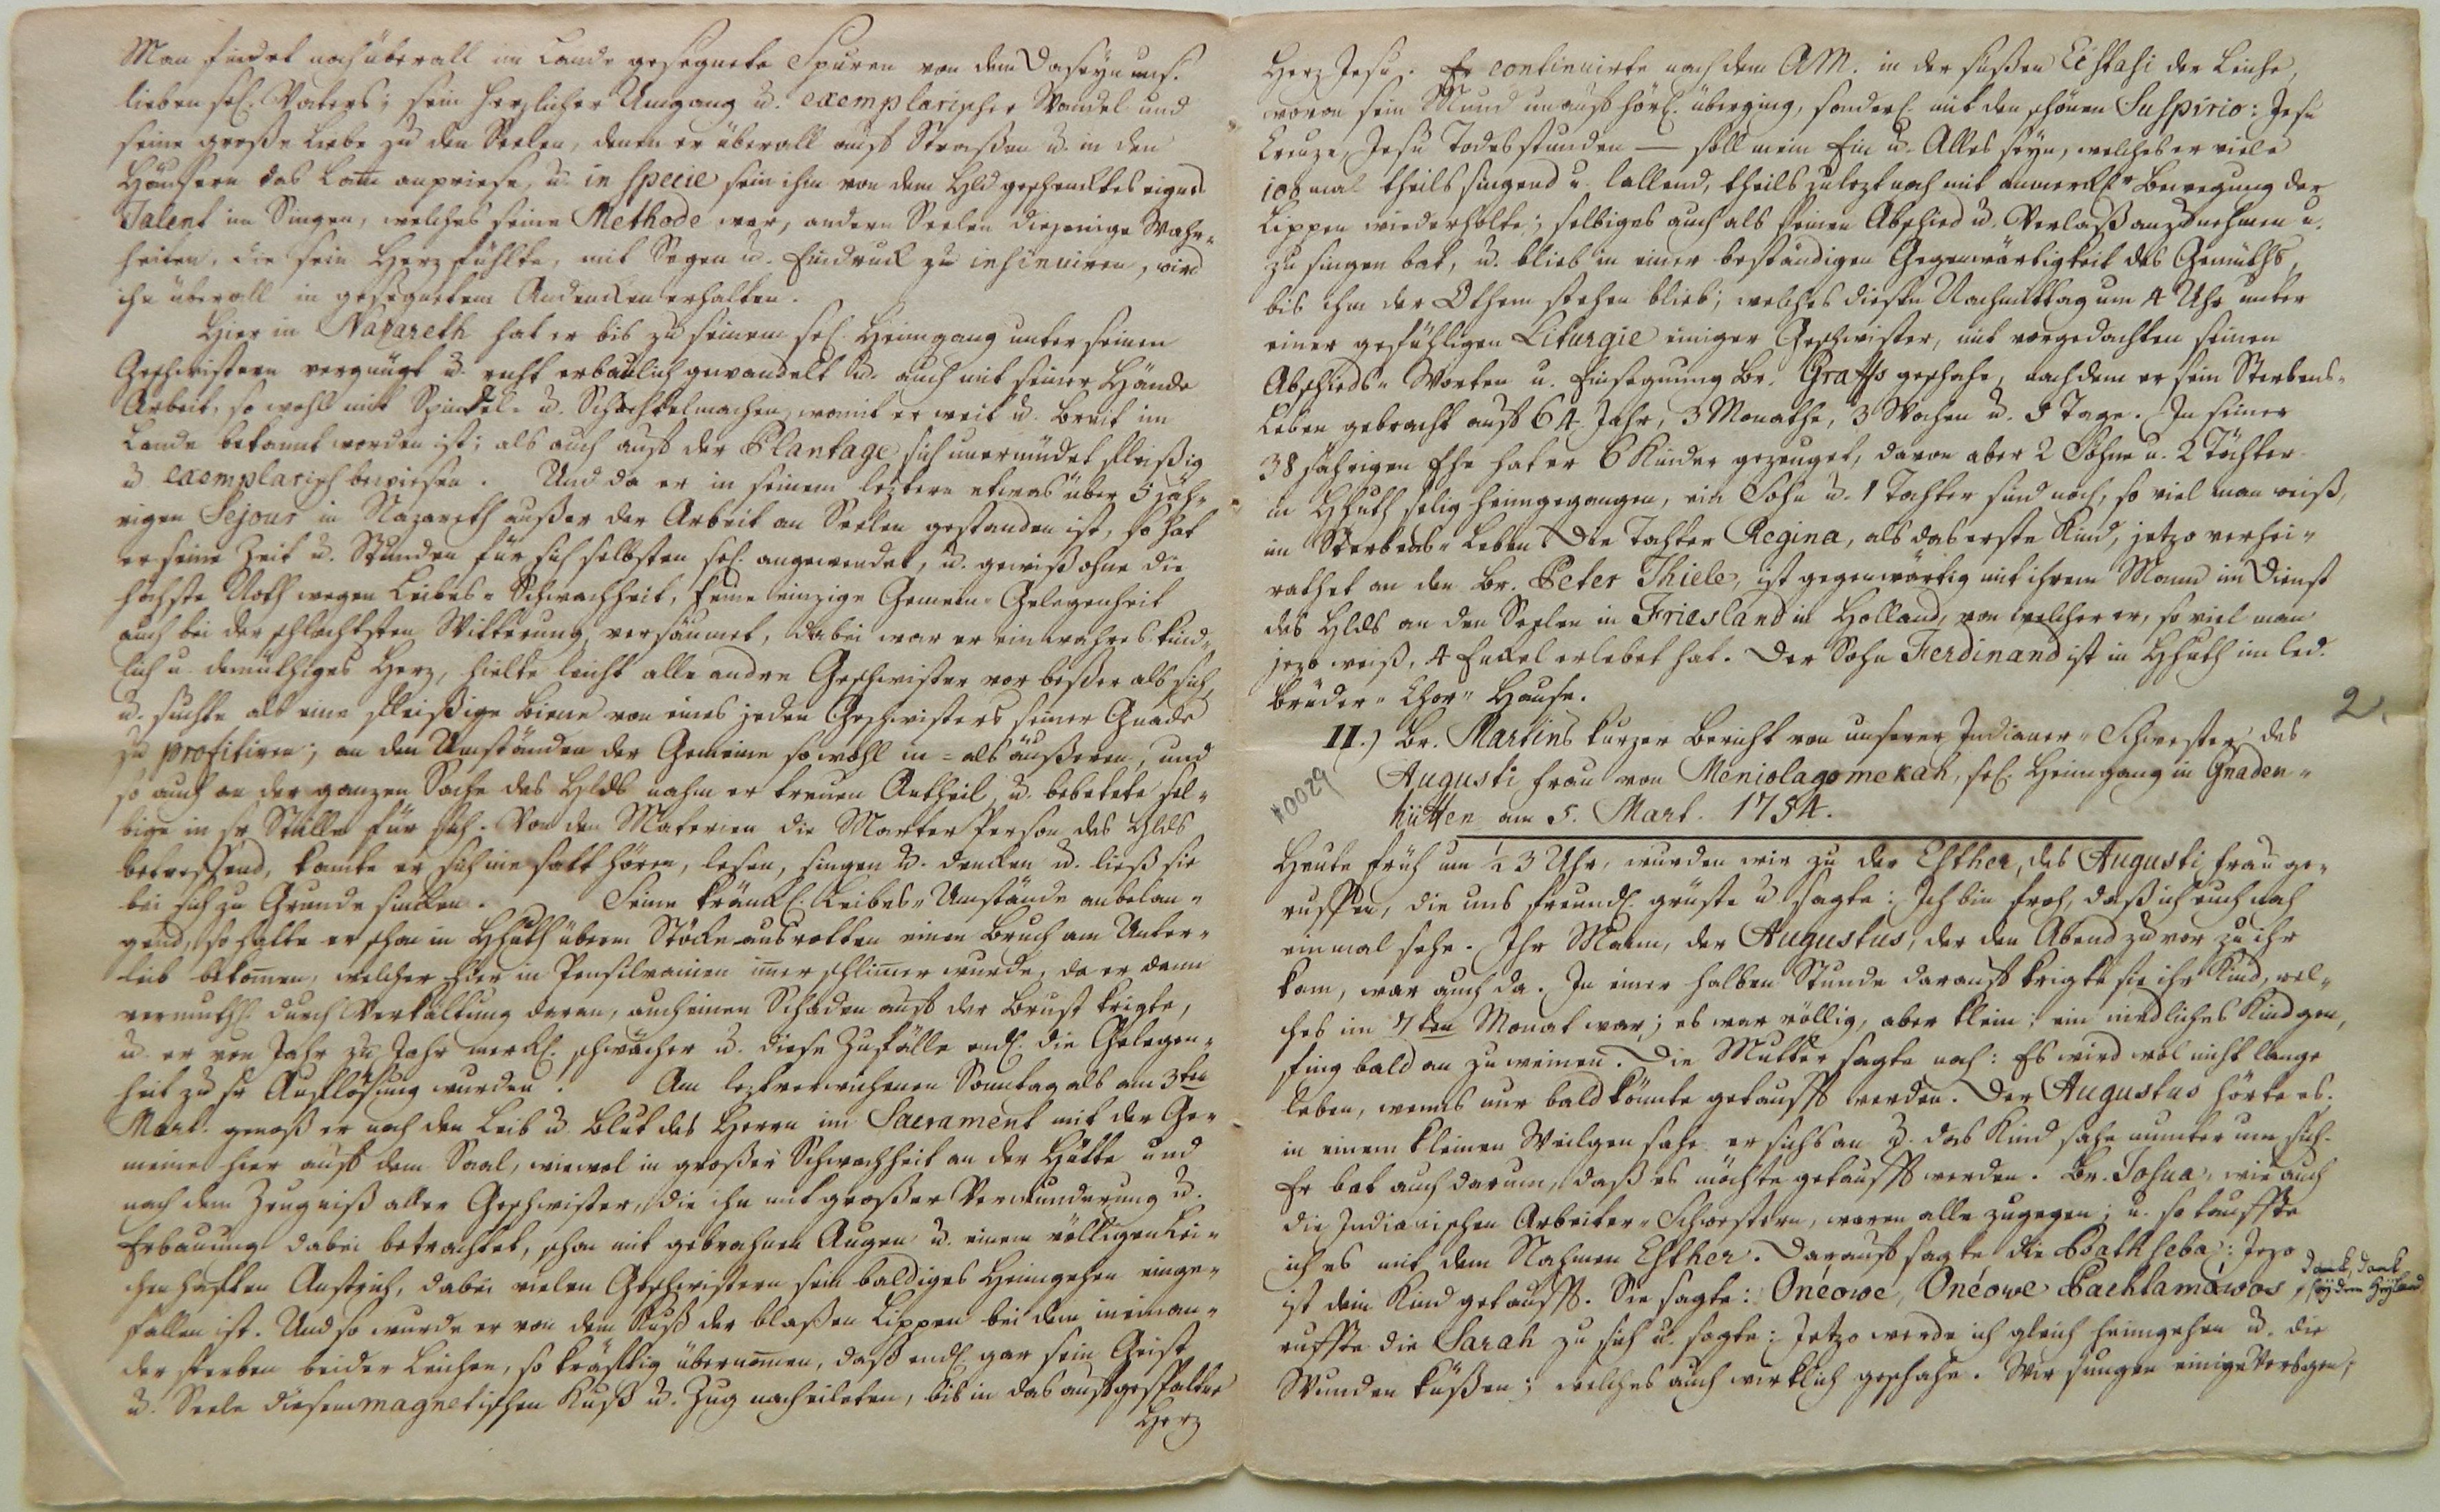 Man findet noch überall im Lande gesegnete Spuren von dem Daseyn uns.
lieben sel. Vaters; sein herzlicher Umgang u. exemplarischer Wandel und
seine große Liebe zu den Seelen, denen er überall auf Straßen u. in den
Häusern das Lamm anpriese, u. in specie sein ihm von dem Hld geschenktes eignes
Talent im Singen, welches seine Methode war, andern Seelen diejenige Wahr-
heiten, die sein Herz fühlte, mit Segen u. Eindruck zu insinuiren, wird
ihn überall in gesegnetem Andencken erhalten.
Hier in Nazareth hat er bis zu seinem sel. Heimgang unter seinen
Geschwistern vergnügt u. recht erbaulich gewandelt u. auch mit seiner Hände
Arbeit, so wohl mit Spindel- u. Schachtelmachen, womit er weit u. breit im
Lande bekannt worden ist; als auch auf der Plantage sich unermüdet fleißig
u exemplarisch bewiesen. Und da er in seinem leztern etwas über 5 jäh-
rigen Sejour in Nazareth außer der Arbeit an Seelen gestanden ist, so hat
er seine Zeit u. Stunden für sich selbsten sel. angewendet, u. gewiß ohne die
höchste Noth wegen Leibes-Schwachheit, keine einzige Gemein-Gelegenheit
auch bei der schlechtsten Witterung, versäumet, dabei war er ein wahres kind-
lich u. demüthiges Herz, hielte leicht alle andre Geschwister vor beßer als sich,
u. suchte als eine fleißige Biene von eines jeden Geschwisters seiner Gnade
zu profitiren; an den Umständen der Gemeine sowohl in- als äußeren, und
so auch an der ganzen Sache des Hlds nahm er treuen Antheil, u. bebetete sel-
bige in sr Stille für sich. Von den Materien die Marter Person des Hlds
betreffend, konte er sich nie satt hören, lesen, singen u. dencken u. ließ sie
bei sich zu Grunde sincken. Seine kränckl. Leibes-Umstände anbelan-
gend, so hatte er schon in Hhuth überm Stöcke ausrotten einen Bruch am Unter-
leib bekomen, welcher hier in Pensilvanien imer schlimer wurde, da er dann
vermuthl. durch Verkältung daran, auch einen Schaden auf der Brust krigte,
u. er von Jahr zu Jahr merkl. schwächer u. diese Zufälle endl. die Gelegen-
heit zu sr Auflösung wurden. Am leztverwichenen Sonntag als am 3ten
Mart. genoß er noch den Leib u. Blut des Herrn im Sacrament mit der Ge-
meine hier auf dem Saal, wiewol in großer Schwachheit an der Hütte und
nach dem Zeugniß aller Geschwister, die ihn mit großer Verwunderung u.
Erbauung dabei betrachtet, schon mit gebrochnen Augen u. einem völligen Lei-
chenhaften Anstrich, dabei vielen Geschwistern sein baldiges Heimgehen einge-
fallen ist. Und so wurde er von dem Kuß der blaßen Lippen bei dem ineinan-
der sterben beider Leichen, so kräftig übernomen, daß endl. gar sein Geist
u. Seele diesem magnetischen Kuß u. Zug nacheileten, bis in das aufgespaltne
Herz
Herz Jesu. Er continuirte nach dem AM. in der süßen Ecstasi der Leiche,
wovon sein Mund unaufhörl. überging, sonderl. mit den schönen Suspirio: Jesu
Creuze, Jesu Todesstunden — soll mein Ein u. Alles seyn, welches er viele
100 mal theils singend u. lallend, theils zulezt noch mit anmerckl. Bewegung der
Lippen wiederholte; selbiges auch als seinen Abschied u. Verlaß aufzunehmen u.
zu singen bat, u. blieb in einer beständigen Gegenwärtigkeit des Gemüths,
bis ihm der Othem stehen blieb; welches diesen Nachmittag um 4 Uhr unter
einer gefühligen Liturgie einiger Geschwister, mit vorgedachten seinen
Abschieds-Worten u. Einsegnung Br. Graffs geschahe, nachdem er sein Sterbens-
Leben gebracht auf 64 Jahr, 3 Monathe, 3 Wochen u. 5 Tage. In seiner
38 jährigen Ehe hat er 6 Kinder gezeuget, davon aber 2 Söhne u. 2 Töchter
in Hhuth selig heimgegangen, ein Sohn u. 1 Tochter sind noch, so viel man weiß,
im Sterbens-Leben. Die Tochter Regina, als das erste Kind, jetzo verhei-
rathet an den Br. Peter Thiele, ist gegenwärtig mit ihrem Mann im Dienst
des Hlds an den Seelen in Friesland in Holland, von welcher er, so viel man
jezo weiß, 4 Enckel erlebet hat. Der Sohn Ferdinand ist in Hhuth im led.
Brüder-Chor-Hause.
2.
II.) Br. Martins kurzer Bericht von unserer Indianer-Schwester des
Augusti Frau von Meniolagomekah, sel. Heimgang in Gnaden-
hütten am 5. Mart. 1754.
Heute früh um ½ 3 Uhr, wurden wir zu der Esther, des Augusti Frau ge-
ruffen, die uns freundl. grüste u sagte: Ich bin froh, daß ich euch noch
einmal sehe. Ihr Mann, der Augustus, der den Abend zuvor zu ihr
kam, war auch da. In einer halben Stunde darauf krigte sie ihr Kind, wel-
ches im 7ten Monat war; es war völlig, aber klein; ein niedliches Kindgen,
fing bald an zu weinen. Die Mutter sagte noch: Es wird wol nicht lange
leben, wenns nur bald könnte getaufft werden. Der Augustus hörte es.
in einem kleinen Weilgen sahe er sichs an u. das Kind sahe munter um sich.
Er bat auch darum, daß es möchte getaufft werden. Br. Josua, wie auch
die Indianischen Arbeiter-Schwestern, waren alle zugegen; u. so tauffte
ich es mit dem Nahmen Esther. Darauf sagte die Bathseba: Jezo
ist dein Kind getaufft. Sie sagte: Onéowe, Onéowe Pachtamawos, danck, danck sey dem Heyland
ruffte die Sarah zu sich u. sagte: Jetzo werde ich gleich heimgehen u. die
Wunden küßen; welches auch wirklich geschahe. Wir sungen einige Versgen,